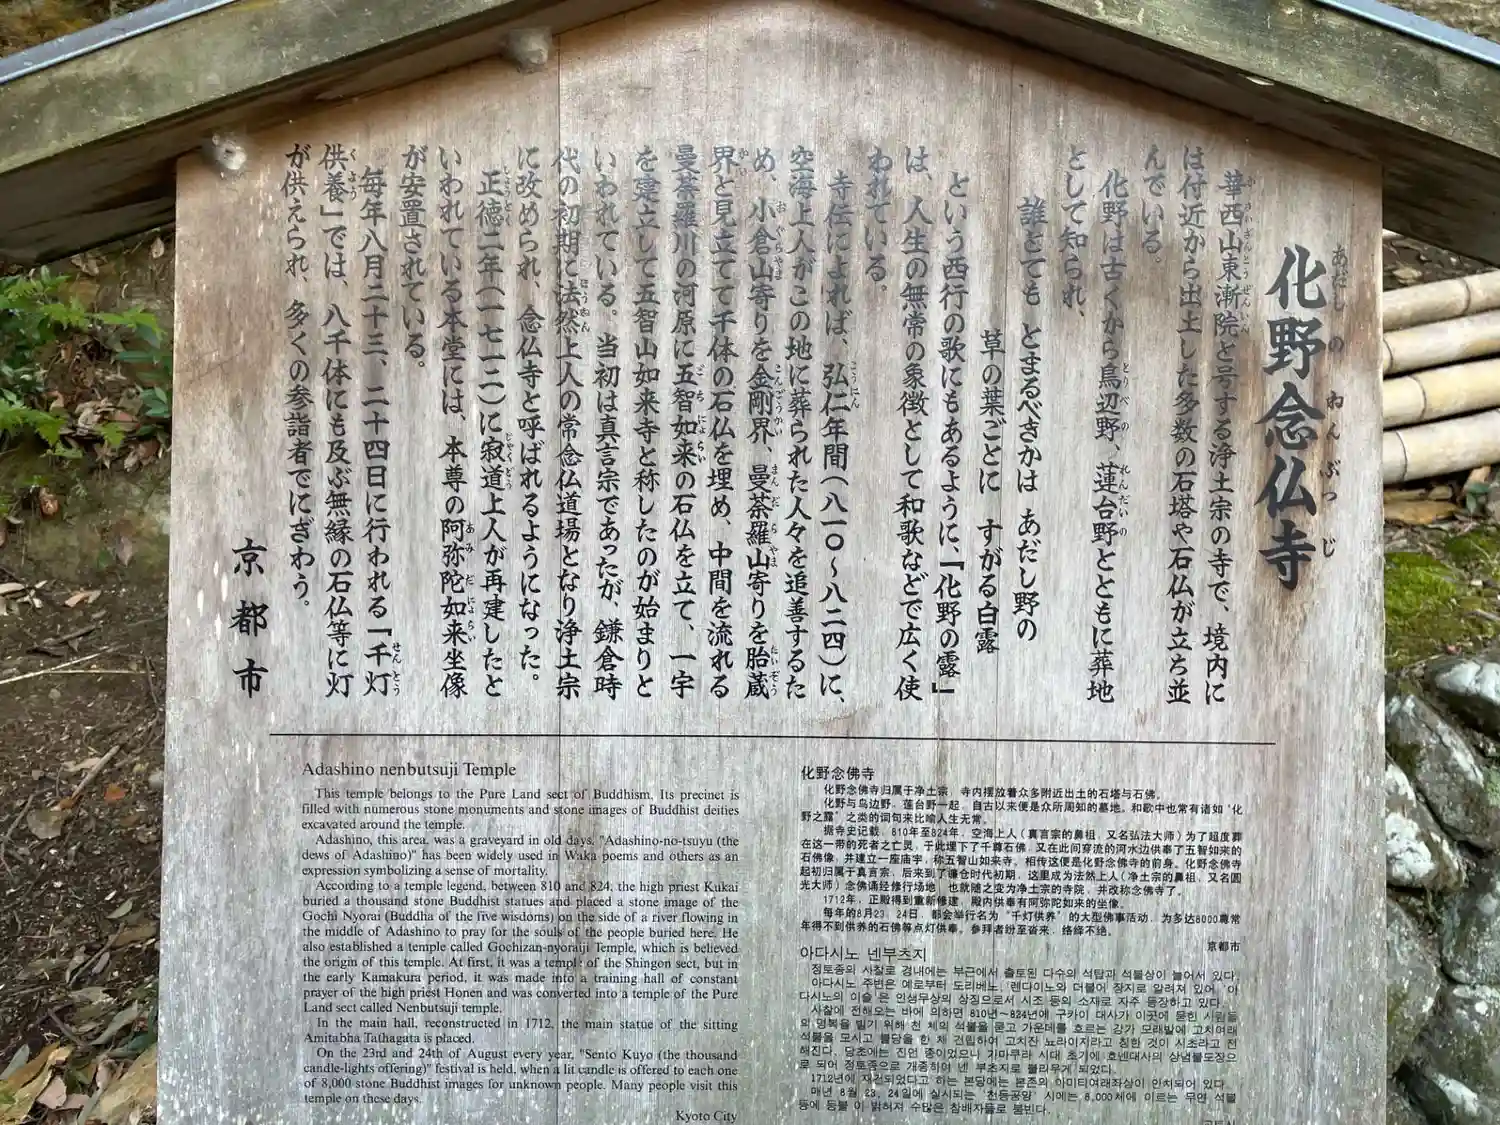 化野念仏寺
華西山東漸院と号する浄土宗の寺で、境内に
は付近から出土した多数の石塔や石仏が立ち並
んでいる。
化野は古くから鳥辺野、蓮台野とともに葬地
として知られ、
誰とても とまるべきかは あだし野の
草の葉ごとに すがる白露
という西行の歌にもあるように、「化野の露」
は、人生の無常の象徴として和歌などで広く使
われている。
寺伝によれば、弘仁年間(八一〇~八二四)に、
空海上人がこの地に葬られた人々を追善するた
め、小倉山寄りを金剛界、曼荼羅山寄りを胎蔵
界と見立てて千体の石仏を埋め、中間を流れる
曼荼羅川の河原に五智如来の石仏を立て、一宇
を建立して五智山如来寺と称したのが始まりと
いわれている。当初は真言宗であったが、鎌倉時
代の初期に法然上人の常念仏道場となり浄土宗
に改められ、念仏寺と呼ばれるようになった。
正徳二年(一七一二)に寂道上人が再建したと
いわれている本堂には、本尊の阿弥陀如来坐像
が安置されている。
毎年八月二十三、二十四日に行われる「千灯
供養」では、八千体にも及ぶ無縁の石仏等に灯
が供えられ、多くの参詣者でにぎわう。
京都市
Adashino nenbutsuji Temple
This temple belongs to the Pure Land sect of Buddhism. Its precinct is
filled with numerous stone monuments and stone images of Buddhist deities
excavated around the temple.
Adashino, this area, was a graveyard in old days. "Adashino-no-tsuyu (the
dews of Adashino)" has been widely used in Waka poems and others as an
expression symbolizing a sense of mortality.
According to a temple legend, between 810 and 824, the high priest Kukai
buried a thousand stone Buddhist statues and placed a stone image of the
Gochi Nyorai (Buddha of the five wisdoms) on the side of a river flowing in
the middle of Adashino to pray for the souls of the people buried here. He
also established a temple called Gochizan-nyoraiji Temple, which is believed
the origin of this temple. At first, it was a temple of the Shingon sect, but in
the early Kamakura period, it was made into a training hall of constant
prayer of the high priest Honen and was converted into a temple of the Pure
Land sect called Nenbutsuji temple.
In the main hall, reconstructed in 1712, the main statue of the sitting
Amitabha Tathagata is placed.
On the 23rd and 24th of August every year, "Sento Kuyo (the thousand
candle-lights offering)" festival is held, when a lit candle is offered to each one
of 8,000 stone Buddhist images for unknown people. Many people visit this
temple on these days.
Kyoto City
化野念佛寺
化野念佛寺归属于净土宗，寺内摆放着众多附近出土的石塔与石佛。
化野与鸟边野，莲台野一起，自古以来便是众所周知的墓地。和歌中也常有诸如'化
野之露'之类的词句来比喻人生无常。
据寺史记载，810年至824年，空海上人（真言宗的鼻祖，又名弘法大师）为了超度葬
在这一带的死者之亡灵，于此埋下了千尊石佛，又在此间穿流的河水边供奉了五智如来的
石佛像，并建立一座庙宇，称五智山如来寺。相传这便是化野念佛寺的前身。化野念佛寺
起初归属于真言宗，后来到了镰仓时代初期，这里成为法然上人（净土宗的鼻祖，又名圆
光大师）念佛诵经修行场地，也就随之变为净土宗的寺院，并改称念佛寺了。
1712年，正殿得到重新修建，殿内供奉有阿弥陀如来的坐像。
每年的8月23，24日，都会举行名为"千灯供养"的大型佛事活动，为多达8000尊常
年得不到供养的石佛等点灯供奉。参拜者纷至沓来，络绎不绝。
京都市
아다시노 넨부츠지
정토종의 사찰로 경내에는 부근에서 출토된 다수의 석탑과 석불상이 늘어서 있다.
아다시노 주변은 예로부터 도리베노, 렌다이노와 더불어 장지로 알려져 있어 '아
다시노의 이슬'은 인생무상의 상징으로서 시조 등의 소재로 자주 등장하고 있다.
사찰에 전해오는 바에 의하면 810년~824년에 구카이 대사가 이곳에 묻힌 사람들
의 명복을 빌기 위해 천 체의 석불을 묻고 가운데를 흐르는 강가 모래밭에 고치여래
석불을 모시고 불당을 한 채 건립하여 고치잔 뇨라이지라고 칭한 것이 시초라고 전
해진다. 당초에는 진언 종이었으나 가마쿠라 시대 초기에 호넨대사의 상념불도장으
로 되어 정토종으로 개종하여 넨 부츠지로 불리우게 되었다.
1712년에 재건되었다고 하는 본당에는 본존의 아미타여래좌상이 안치되어 있다.
매년 8월 23, 24일에 실시되는 '천등공양' 시에는 8,000체에 이르는 무연 석불
등에 등불 이 밝혀져 수많은 참배자들로 붐빈다.